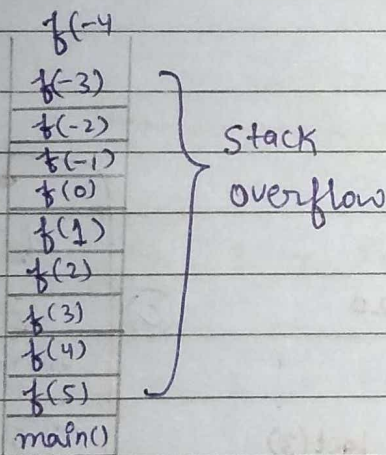 f(-4
f(-3)
f(-2)
f(-1)
f(0)
f(1)
f(2)
f(3)
f(4)
f(5)
main()
Stack
overflow